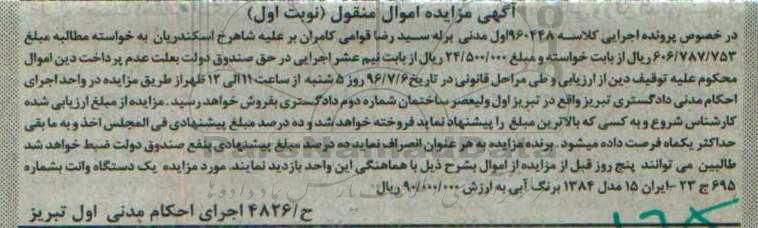 آگهی مزایده اموال منقول (نوبت اول)
در خصوص پرونده اجرایی کلاسه ۹۶۰۴۴۸اول مدنی برله سید رضا قوامی کامران بر علیه شاهرخ اسکندریان به خواسته مطالبه مبلغ
۶۰۶/۷۸۷/۷۵۳ریال از بابت خواسته و مبلغ ۲۴/۵۰۰/۰۰۰ ریال از بابت نیم عشر اجرایی در حق صندوق دولت بعلت عدم پرداخت دین اموال
محکوم علیه توقیف دین از ارزیابی و طی مراحل قانونی در تاریخ۹۶/۷/۶ روز ۵ شنبه از ساعت ۱۱الی ۱۲ ظهر از طریق مزایده در واحد اجرای
احکام مدنی دادگستری تبریز واقع در تبریز اول ولیعصر ساختمان شماره دوم دادگستری بفروش خواهد رسید . مزایده از مبلغ ارزیابی شده
کارشناس شروع و به کسی که بالاترین مبلغ را پیشنهاد نماید فروخته خواهد شد و ده درصد مبلغ پیشنهادی فی المجلس اخذ و به ما بقی
حداکثر یکماه فرصت داده میشود . برنده مزایده به هر عنوان انصراف نماید ده درصد مبلغ پیشنهادی بنفع صندوق دولت ضبط خواهد شد
طالبین می توانند پنج روز قبل از مزایده از اموال بشرح ذیل با هماهنگی این واحد بازدید نمایند. مورد مزایده یک دستگاه وانت بشماره
۶۹۵ ج ۲۳ -ایران ۱۵ مدل ۱۳۸۴ برنگ آبی به ارزش ۹۰/۰۰۰/۰۰۰ ریال
ح/۴۸۲۶ اجرای احکام مدنی اول تبریز